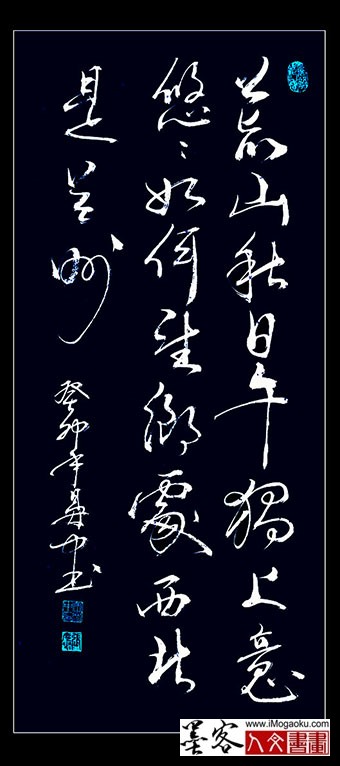 荒山秋日午獨上意
悠悠如何望鄉處西北
是州
癸卯年
墨客
www.iMogaoku.com
人文書畫